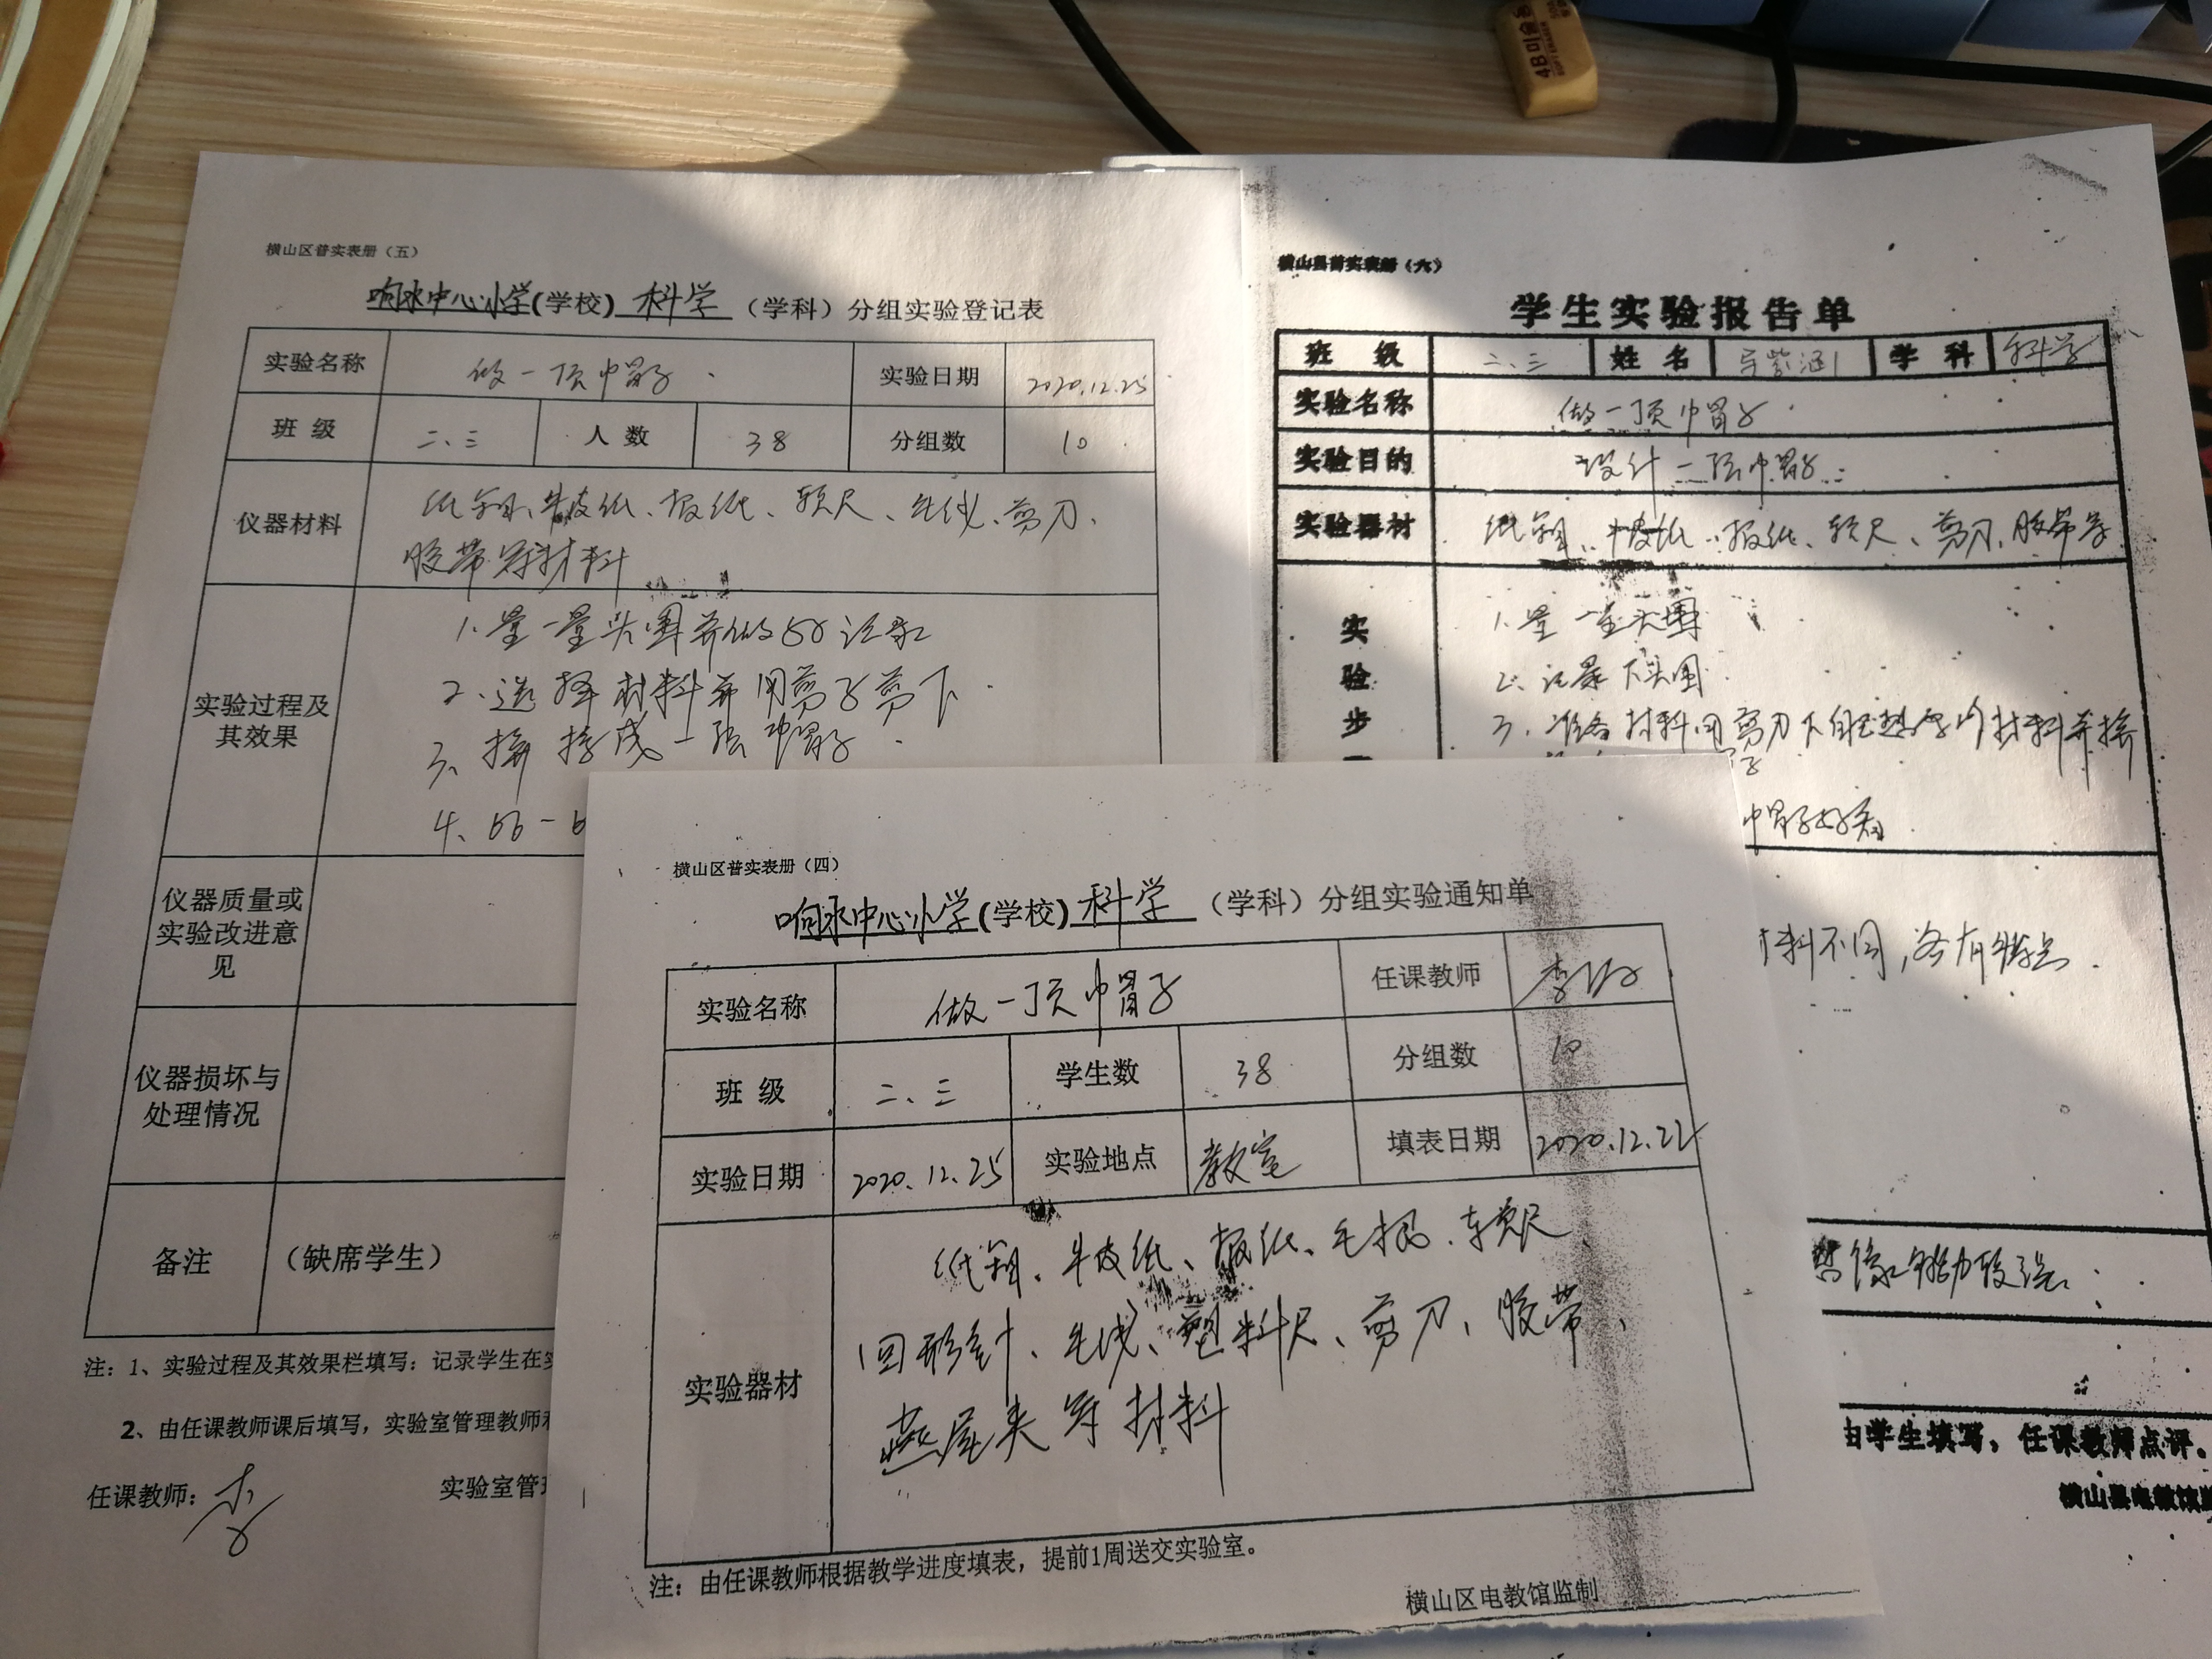 4B 美术
横山区普实表册（五）
响水中心小学(学校) 科学 （学科）分组实验登记表
实验名称 做一顶帽子 实验日期 2020.12.25
班 级 二、三 人 数 38 分组数 10
仪器材料 纸绳、牛皮纸、报纸、软尺、毛线、剪刀、
胶带等材料
实验过程及
其效果
1、量一量头围并做好记录
2、选择材料并用剪子剪下
3、拼接成一顶帽子
4、比一
仪器质量或
实验改进意
见
仪器损坏与
处理情况
备注 （缺席学生）
注：1、实验过程及其效果栏填写：记录学生在实
2、由任课教师课后填写，实验室管理教师
任课教师： 李 实验室管理
横山县普实表册（六）
学生实验报告单
班 级 二、三 姓 名 紫涵 学 科 科学
实验名称 做一顶帽子
实验目的 设计一顶帽子
实验器材 纸绳、牛皮纸、报纸、软尺、剪刀、胶带等
实
验
步
1、量一量头围
2、记录下头围
3、准备材料，用剪刀下自己想要的材料并接
子
帽子好看
材料不同，各有特点
想像能力较强
由学生填写，任课教师点评。
横山县电教馆监
横山区普实表册（四）
响水中心小学(学校) 科学 （学科）分组实验通知单
实验名称 做一顶帽子 任课教师 李
班 级 二、三 学生数 38 分组数 10
实验日期 2020.12.25 实验地点 教室 填表日期 2020.12.22
实验器材
纸绳、牛皮纸、报纸、毛根、软尺、
回形针、毛线、塑料尺、剪刀、胶带、
燕尾夹等材料
注：由任课教师根据教学进度填表，提前1周送交实验室。
横山区电教馆监制